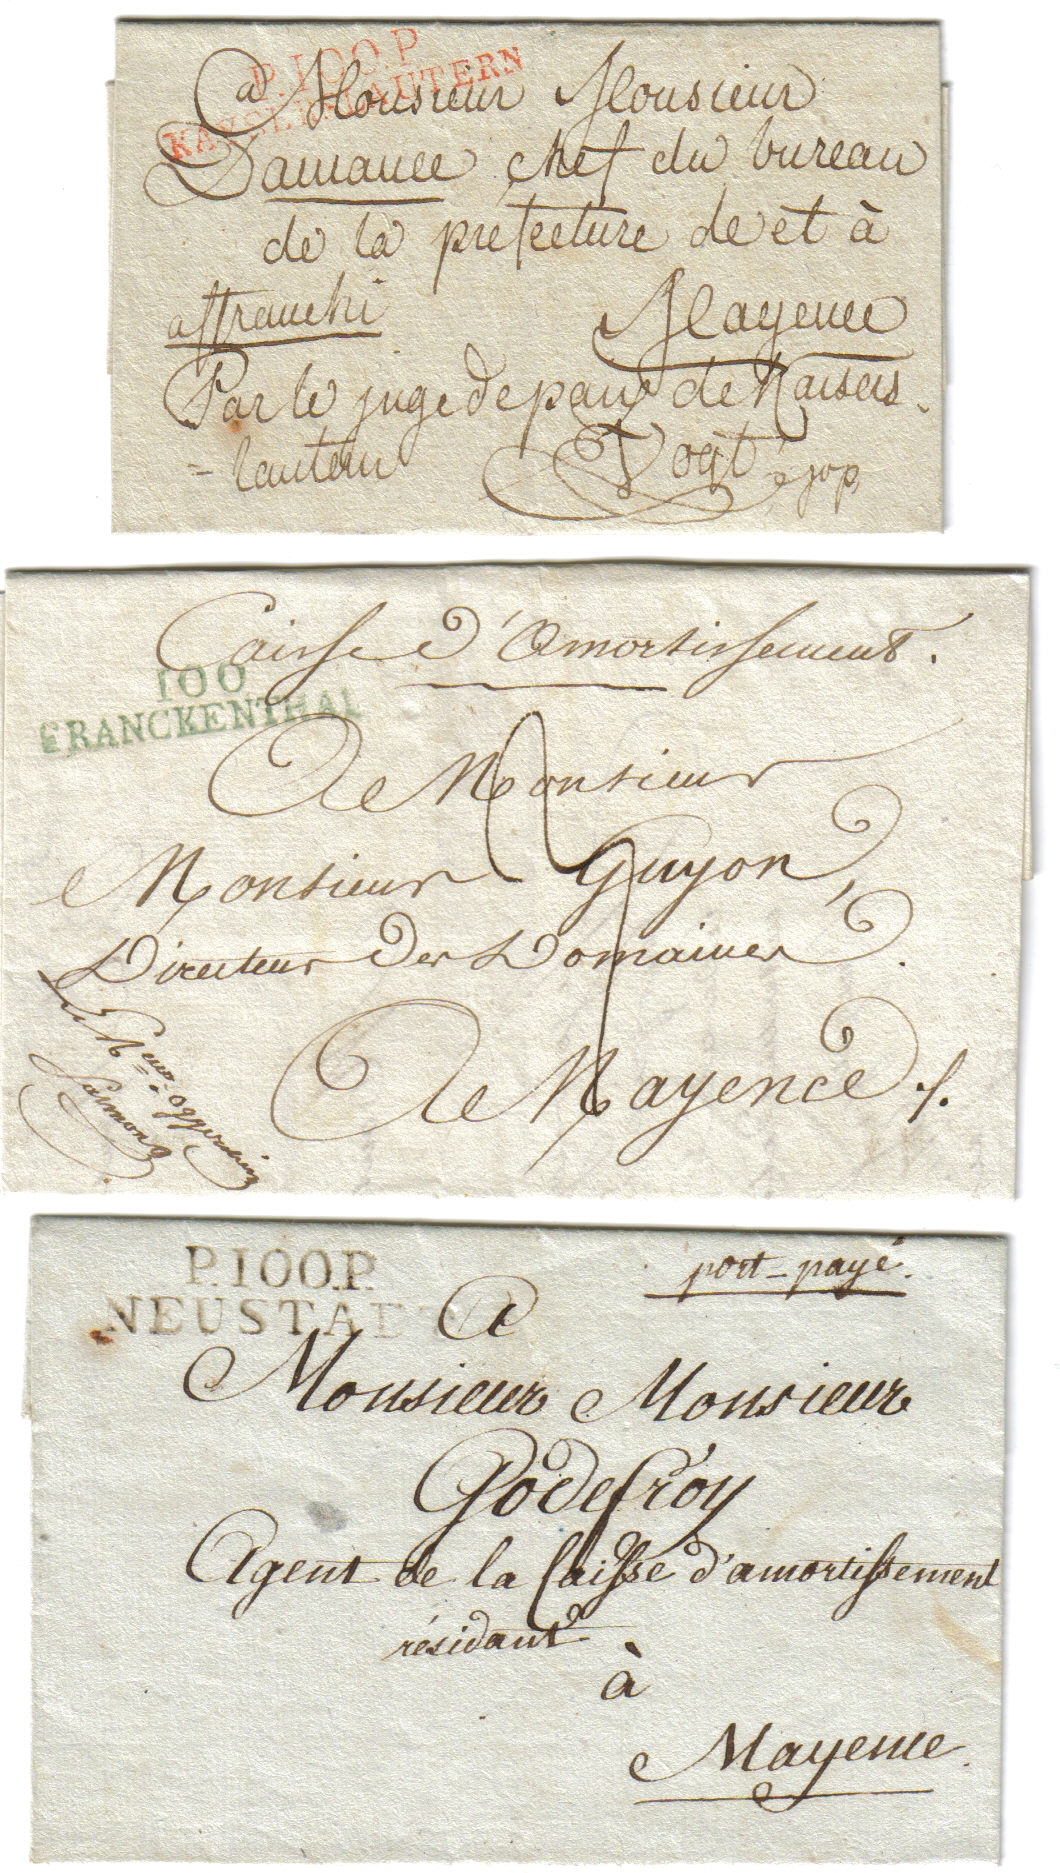 P.100.P.
KAYSERSLAUTERN
a Monsieur Monsieur
Damance chef du bureau
de la prefecture de et à
affranchi Mayence
Par le juge de paix de Kaisers
=lautern Vogt
Caisse d'Amortissement.
100
FRANCKENTHAL
A Monsieur
Monsieur Guyon,
Directeur des Domaines.
A Mayence ./.
P.100.P.
NEUSTADT
port-payé.
A
Monsieur Monsieur
Godefroy
Agent de la Caisse d'amortissement
résidant
à
Mayence.